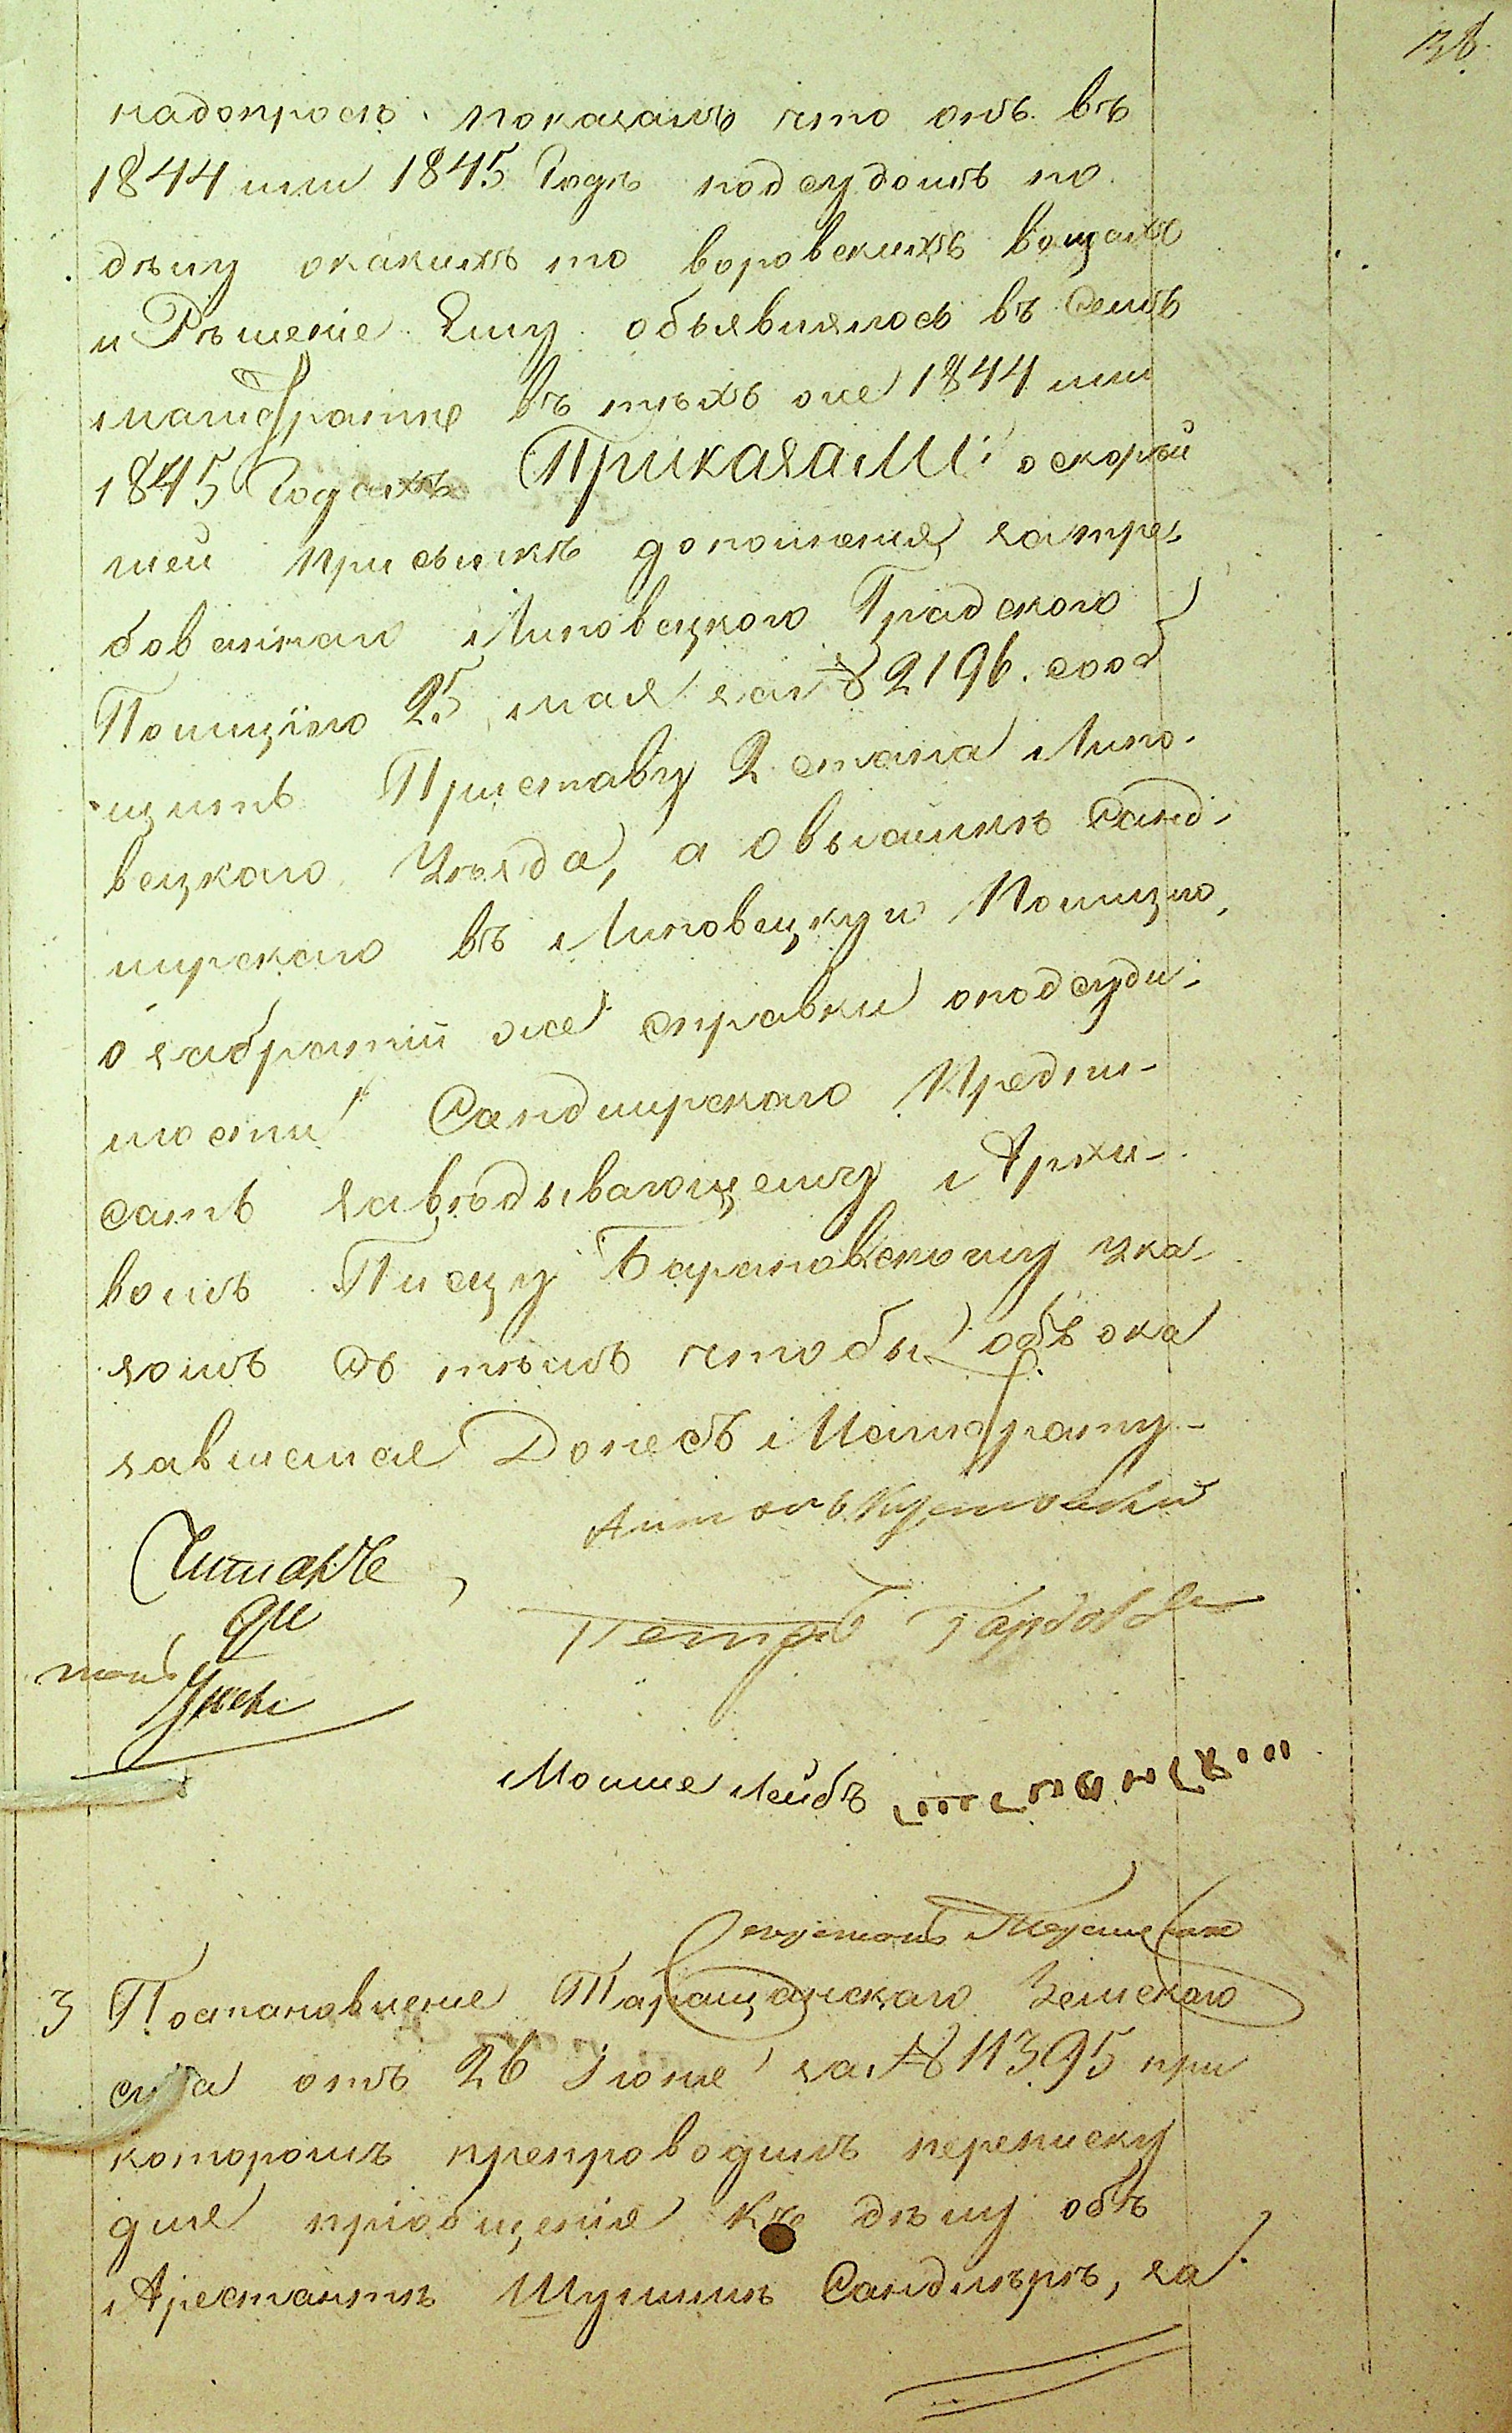 38.
надопросъ показалъ что онъ въ
1844 или 1845 Годѣ подсудомъ по
дѣлу окакихъ то воровскихъ вещахъ
и Рѣшеніе Ему объявлялось въ Семъ
магистратѣ въ тѣхъ же 1844 или
1845 Годахъ Приказали: оскорѣй
шей присылкѣ дополненія затре-
бованнаго Липовецкого Градскою
Полиціею 25 мая за № 2196. сооб
щить Приставу 2 стана Липо-
вецкаго Уѣзда, а овысылкѣ Санд-
мирскаго въ Липовецкую Полицію,
о забраніи же справки оподсуди-
мости Сандмирскаго Предпи-
сать завѣдывающему Архи-
вомъ Писцу Барановскому ука
зомъ съ тѣмъ чтобы объ ока
завшемся Донесъ Магистрату-
Антонъ
Петръ
Мошше Лейбъ
3 Постановление Таращанскаго Земского
суда отъ 26 Іюня за № 11395 при
которомъ препроводилъ переписку
для пріобщенія къ дѣлу объ
Арестантѣ Шулимѣ Сандмѣрѣ, за